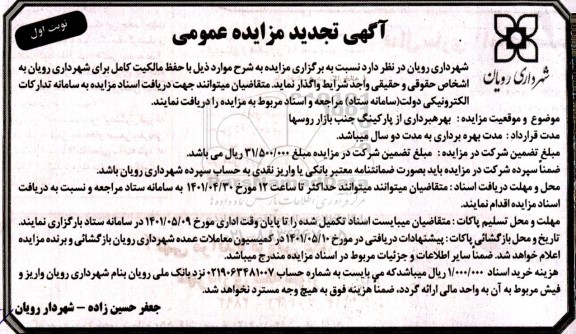 آگهی تجدید مزایده عمومی
نوبت اول
شهرداری رویان
شهرداری رویان در نظر دارد نسبت به برگزاری مزایده به شرح موارد ذیل با حفظ مالکیت کامل برای شهرداری رویان به
اشخاص حقوقی و حقیقی واجد شرایط واگذار نماید. متقاضیان میتوانند جهت دریافت اسناد مزایده به سامانه تدارکات
الکترونیکی دولت(سامانه ستاد) مراجعه و اسناد مربوط به مزایده را دریافت نمایند.
موضوع و موقعیت مزایده : بهرهبرداری از پارکینگ جنب بازار روسها
مدت قرارداد: مدت بهره برداری به مدت دو سال میباشد.
مبلغ تضمین شرکت در مزایده : مبلغ تضمین شرکت در مزایده مبلغ ۳۱/۵۰۰/۰۰۰ ریال می باشد.
ضمناً سپرده شرکت در مزایده باید بصورت ضمانتنامه معتبر بانکی یا واریز نقدی به حساب سپرده شهرداری رویان باشد.
محل و مهلت دریافت اسناد : متقاضیان میتوانند میتوانند حداکثر تا ساعت ۱۲ مورخ ۱۴۰۱/۰۴/۳۰ به سامانه ستاد مراجعه و نسبت به دریافت
اسناد مزایده اقدام نمایند.
مهلت و محل تسلیم پاکات : متقاضیان میبایست اسناد تکمیل شده را تا پایان وقت اداری مورخ ۱۴۰۱/۰۵/۰۹ در سامانه ستاد بارگزاری نمایند.
تاریخ و محل بازگشائی پاکات : پیشنهادات دریافتی در مورخ ۱۴۰۱/۰۵/۱۰ در کمیسیون معاملات عمده شهرداری رویان بازگشائی و برنده مزایده
اعلام خواهد شد. ضمناً سایر اطلاعات و جزئیات مربوط در اسناد مزایده مندرج میباشد.
هزینه خرید اسناد ۱/۰۰۰/۰۰۰ ریال میباشد که می بایست به شماره حساب ۰۲۱۹۰۶۳۴۸۱۰۰۷ نزد بانک ملی رویان بنام شهرداری رویان واریز و
فیش مربوط به آن به واحد مالی ارائه گردد، ضمناً هزینه فوق به هیچ وجه مسترد نخواهد شد.
جعفر حسین زاده – شهردار رویان